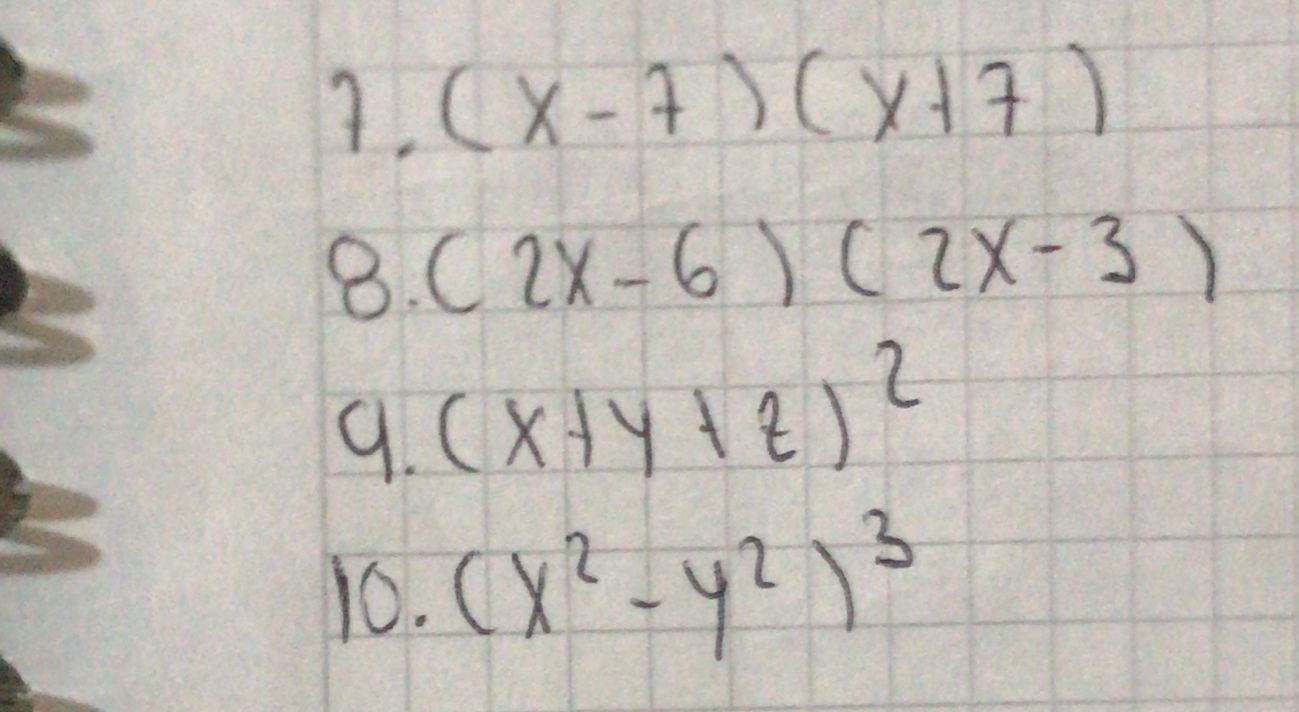 7. (x - 7) (x + 7)
8. (2x - 6) (2x - 3)
9. (x + y + z)²
10. (x² - y²)³